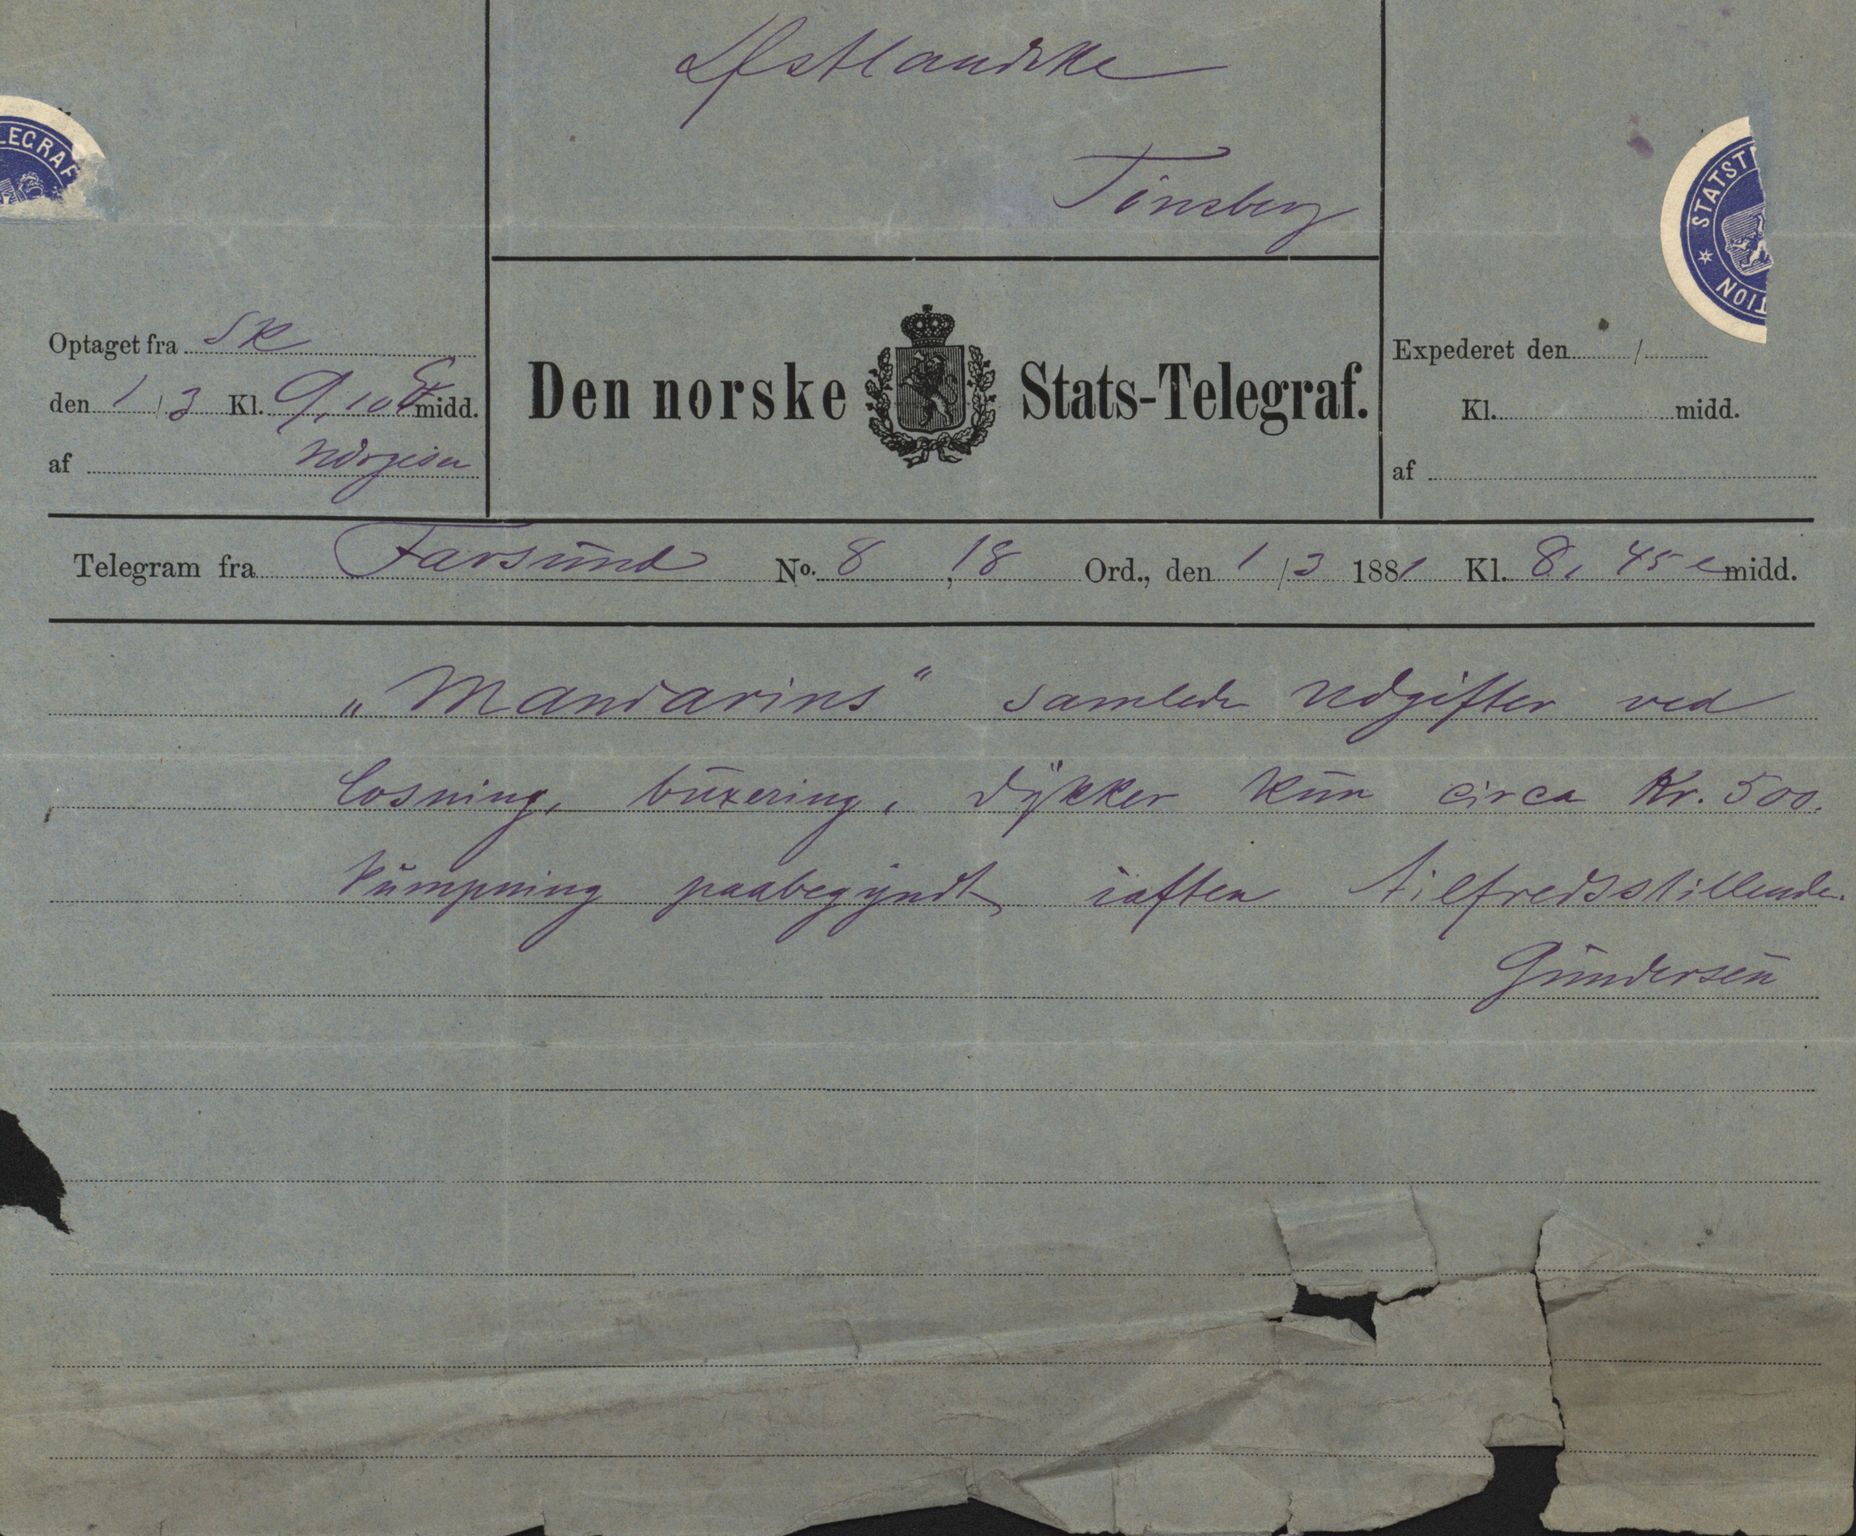 Østlandske
Tönsberg
LEGRAF
STATST
TION
Optaget fra Sk
den 1/3 Kl. 9,10 E midd.
af
Den norske Stats-Telegraf.
Expederet den /
Kl. midd.
af
Telegram fra Farsund No. 8, 18 Ord., den 1/3 1881 Kl. 8,45 e midd.
„Mandarins" samlede Udgifter ved
losning, buxering, dykker kun circa Kr. 500.
pumpning paabegyndt iaften tilfredsstillende.
Gundersen